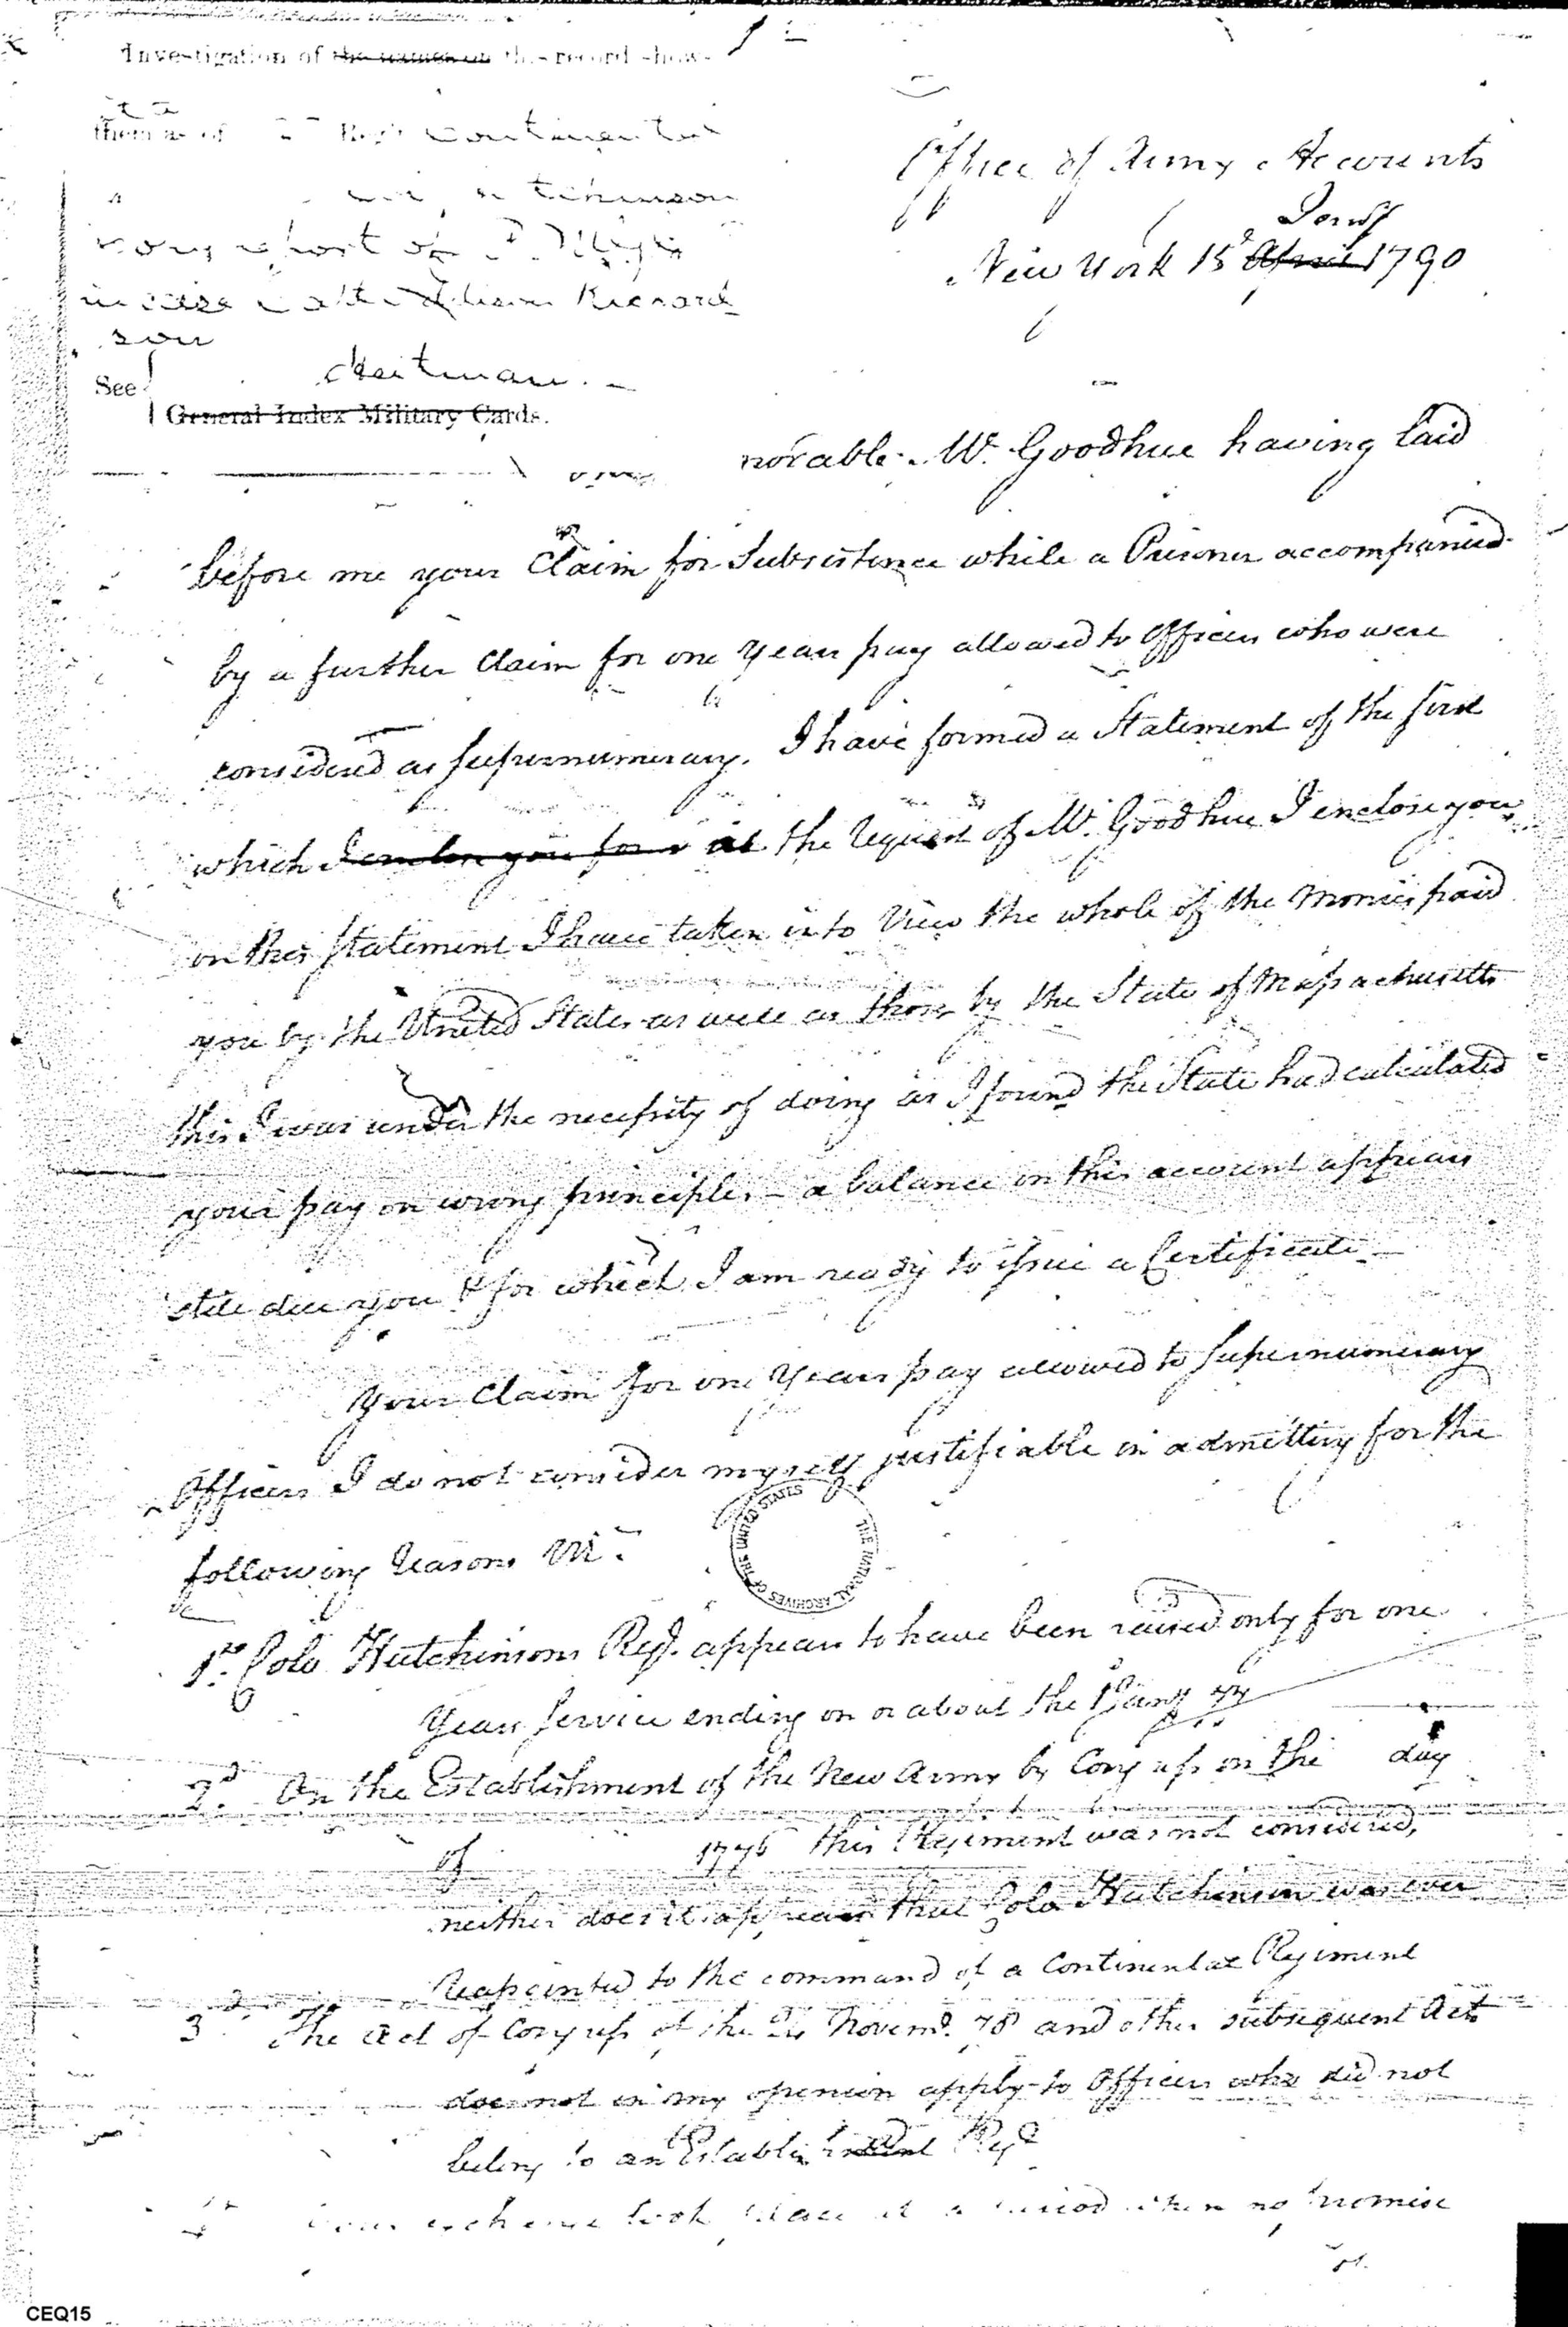 Investigation of the names on this record shows
them as of Regt Continental
See Heitman.
General Index Military Cards.
Office of Army Accounts
New York 15 April 1790
norable Mr. Goodhue having laid
before me your Claim for Subsistence while a Prisoner accompanied
by a further Claim for one Years pay allowed to Officers who were
considered as supernumerary. I have formed a Statement of the first
which I enclose you for at the request of Mr. Goodhue I enclose you
on this Statement I have taken into View the whole of the Monies paid
you by the United States as well as those by the State of Massachusetts
this I was under the necessity of doing as I found the State had calculated
your pay on wrong principles – a balance on this account appears
still due you & for which I am ready to issue a Certificate –
Your Claim for one Years pay allowed to supernumerary
Officers I do not consider myself justifiable in admitting for the
following reasons Viz.
THE NATIONAL ARCHIVES OF THE UNITED STATES
1st. Colo Hutchinsons Regt. appears to have been raised only for one
Years Service ending on or about the 1st Jany 77
2d. On the Establishment of the New Army by Congress on the day
of 1776 this Regiment was not considered,
neither does it appear that Colo Hutchinson was ever
Reappointed to the command of a Continental Regiment
3d. The Act of Congress of the 24 Novemr. 78 and other subsequent Acts
does not in my opinion apply to Officers who did not
belong to an Establishment Regt
exchange took place at a period when no promise
CEQ15